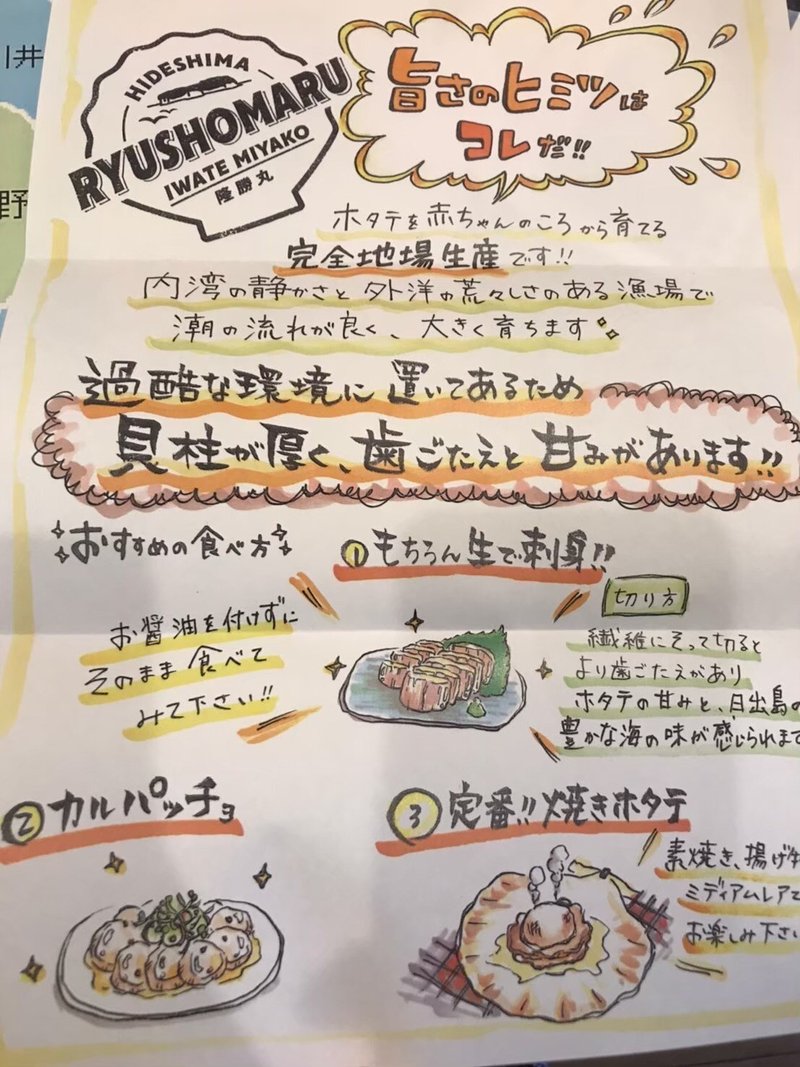 川井
野
HIDESHIMA
RYUSHOMARU
IWATE MIYAKO
隆勝丸
旨さのヒミツは
コレだ!!
ホタテを赤ちゃんのころから育てる
完全地場生産です!!
内湾の静かさと外洋の荒々しさのある漁場で
潮の流れが良く、大きく育ちます
過酷な環境に置いてあるため
貝柱が厚く、歯ごたえと甘みがあります!!
おすすめの食べ方
①もちろん生で刺身!!
お醤油を付けずに
そのまま食べて
みて下さい!!
切り方
繊維にそって切ると
より歯ごたえがあり
ホタテの甘みと、日出島の
豊かな海の味が感じられます
②カルパッチョ
③定番!!焼きホタテ
素焼き、揚げ
ミディアムレアで
お楽しみ下さい